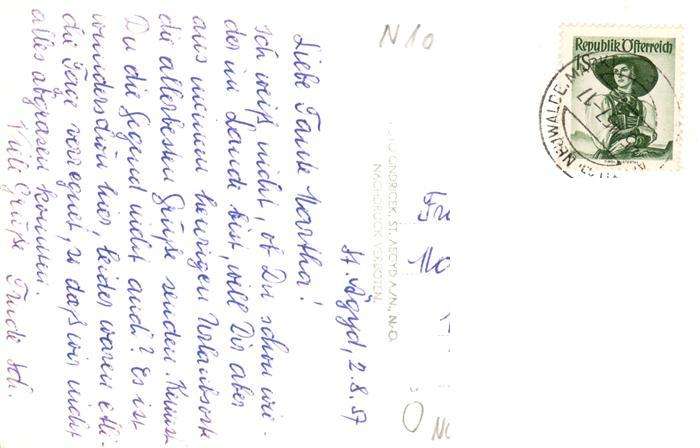 St. Ägyd, 2.8.57
Liebe Tante Martha!
Ich weiß nicht, ob Du schon wie-
der im Lande bist, will Dir aber
aus meinem heurigen Urlaubsorte
die allerbesten Grüße senden. Kennst
Du die Gegend nicht auch? Es ist
wunderschön hier, leider waren etli-
die Tage verregnet, so daß wir nicht
alles abgrasen konnten.
Viele Grüße Trude Sch.
N 10
Republik Österreich
1S
NACHDRUCK VERBOTEN
ST. AEGYD A/N., N.-Ö.
Fr